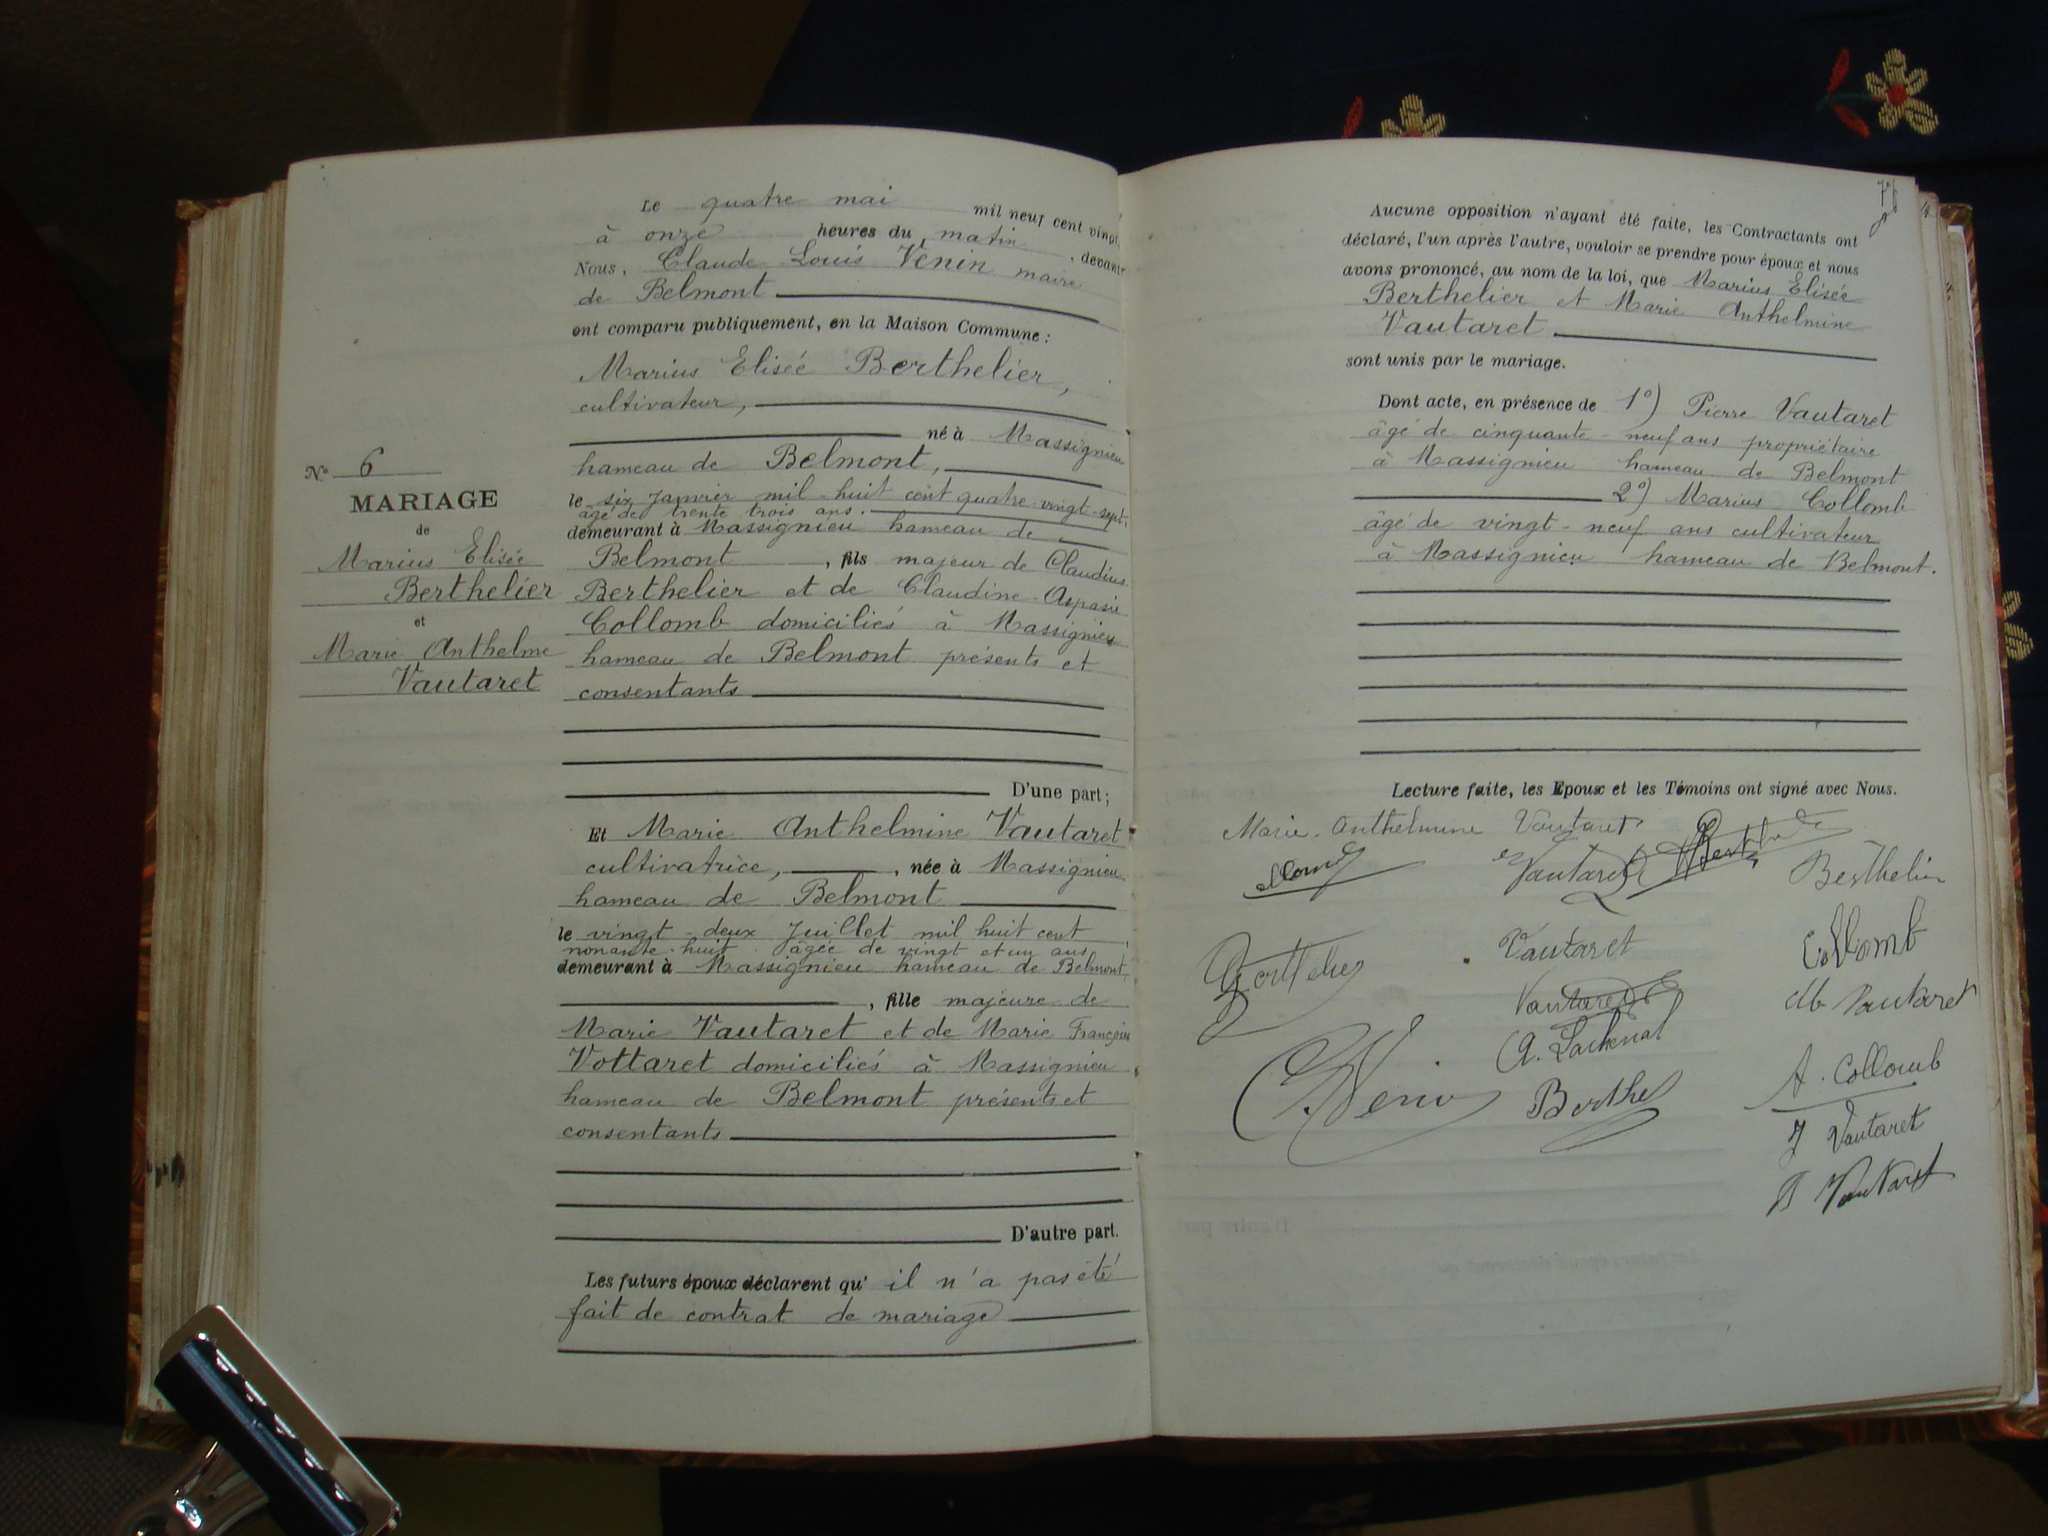 Le quatre mai mil neuf cent vingt,
à onze heures du matin, devant
Nous, Claude Louis Vénin maire
de Belmont
ont comparu publiquement, en la Maison Commune :
Marius Elisée Berthelier,
cultivateur,
né à Massignieu
hameau de Belmont,
le six Janvier mil-huit cent quatre-vingt-sept,
âgé de trente trois ans.
demeurant à Massignieu hameau de
Belmont, fils majeur de Claudius
Berthelier et de Claudine-Aspasie
Collomb domiciliés à Massignieu
hameau de Belmont présents et
consentants
D'une part ;
N° 6
MARIAGE
de
Marius Elisée
Berthelier
et
Marie Anthelme
Vautaret
Et Marie Anthelmine Vautaret
cultivatrice, , née à Massignieu
hameau de Belmont
le vingt-deux Juillet mil huit cent
nonante-huit âgée de vingt et un ans
demeurant à Massignieu hameau de Belmont,
, fille majeure de
Marie Vautaret et de Marie Françoise
Vottaret domiciliés à Massignieu
hameau de Belmont présents et
consentants
D'autre part.
Les futurs époux déclarent qu' il n'a pas été
fait de contrat de mariage
Aucune opposition n'ayant été faite, les Contractants ont
déclaré, l'un après l'autre, vouloir se prendre pour époux et nous
avons prononcé, au nom de la loi, que Marius Elisée
Berthelier et Marie Anthelmine
Vautaret
sont unis par le mariage.
Dont acte, en présence de 1°) Pierre Vautaret
âgé de cinquante-neuf ans propriétaire
à Massignieu hameau de Belmont
2°) Marius Collomb
âgé de vingt-neuf ans cultivateur
à Massignieu hameau de Belmont.
Lecture faite, les Epoux et les Témoins ont signé avec Nous.
Marie-Anthelmine Vautaret
Vautaret Berthelier
Vautaret Collomb
Vautaret Vautaret
A. Collomb
Vénin Berthe
J Vautaret
Vautaret